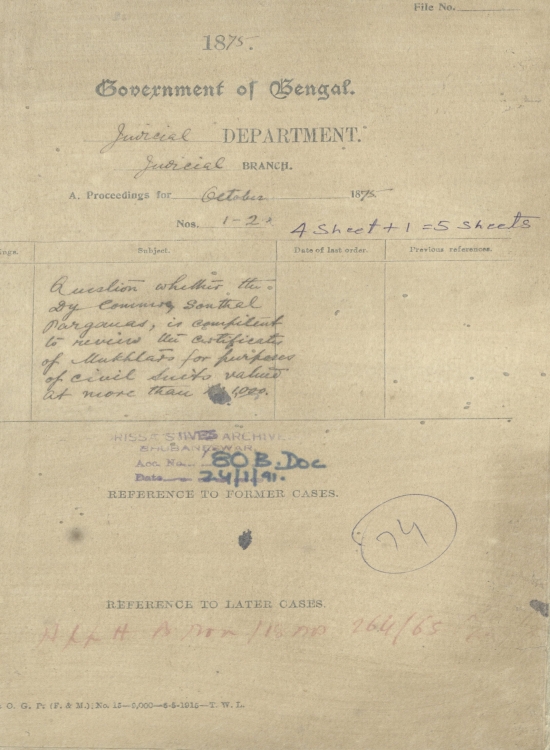 File No.
1875.
Government of Bengal.
Judicial DEPARTMENT.
Judicial BRANCH.
A. Proceedings for October 1875.
Nos. 1-2
4 Sheet + 1 = 5 Sheets
Subject. Date of last order. Previous references.
Question whether the
Dy Commr, Sonthal
Parganas, is competent
to review the certificate
of Mukhtars for purposes
of civil suits valued
at more than 1,000.
ARCHIVE
BHUBANESWAR
Acc. No. 80 B. Doc
Date 24/1/91.
REFERENCE TO FORMER CASES.
74
REFERENCE TO LATER CASES.
264/65
O. G. P. (F. & M.) No. 15—5,000—6-5-1915—T. W. L.